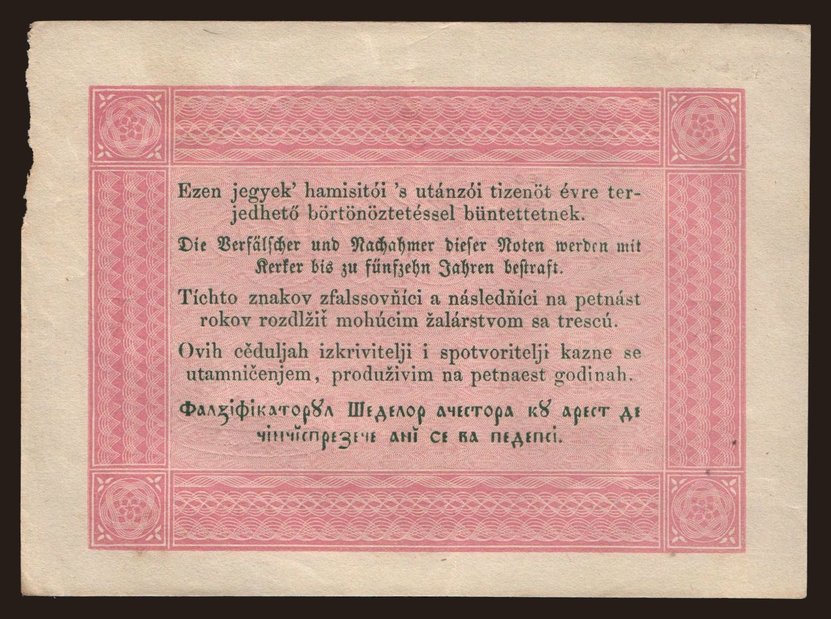 Ezen jegyek’ hamisitói ’s utánzói tizenöt évre ter-
jedhető börtönöztetéssel büntettetnek.
Die Verfälscher und Nachahmer dieser Noten werden mit
Kerker bis zu fünfzehn Jahren bestraft.
Tíchto znakov zfalssovňíci a následňíci na petnást
rokov rozdlžiť mohúcim žalárstvom sa trescú.
Ovih cěduljah izkrivitelji i spotvoritelji kazne se
utamničenjem, produživim na petnaest godinah.
Фалꙁіфікаторꙋл Шеделор ачестора кꙋ арест де
чінчїспреꙁече анї се ва педепсі.